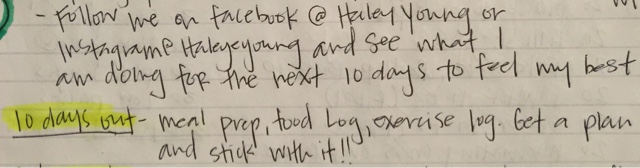 - Follow me on facebook @ Haley Young or
Instagrame Haleyeyoung and see what I
am doing for the next 10 days to feel my best
10 days out - meal prep, food Log, exercise log. Get a plan
and stick with it!!